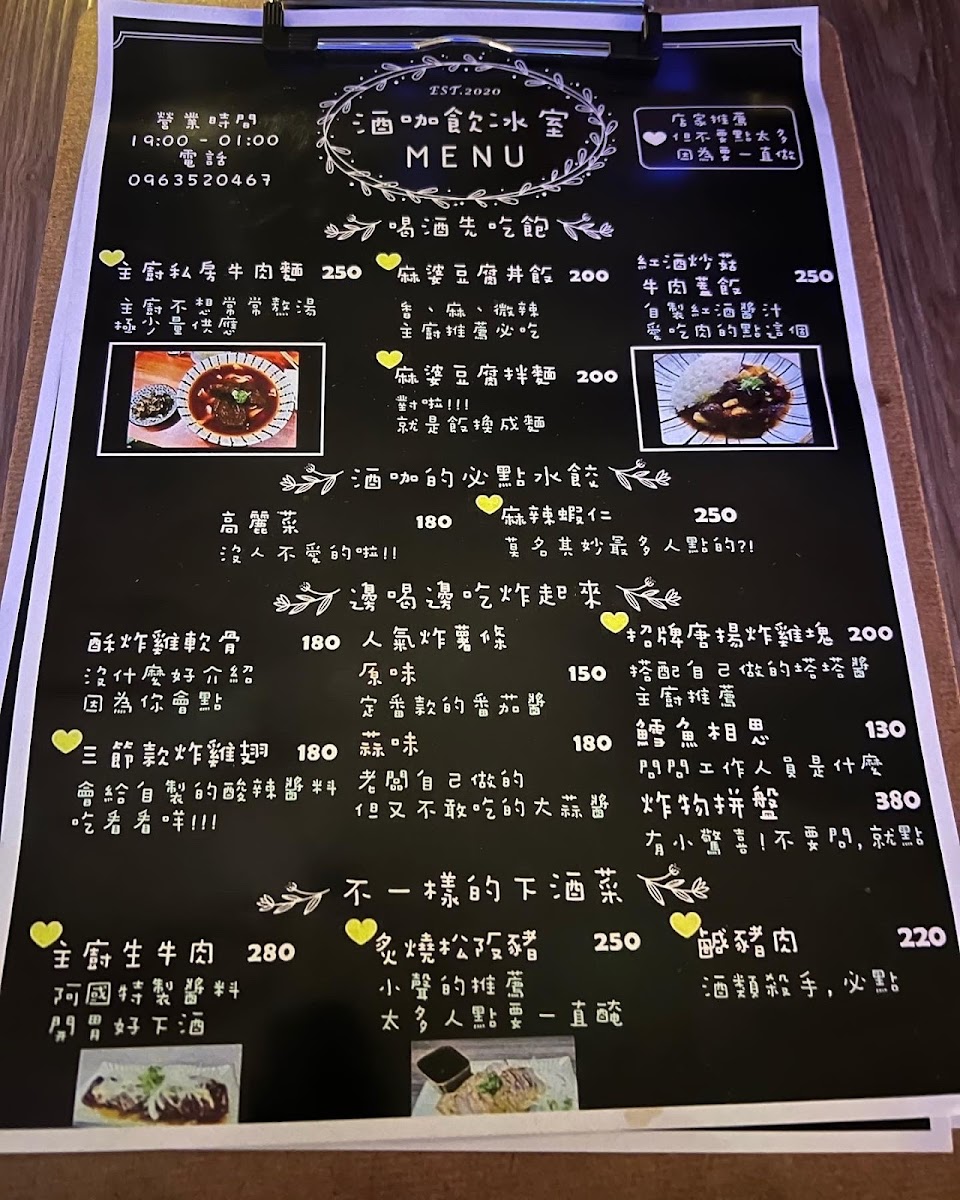 EST.2020
酒咖飲冰室
MENU
營業時間
19:00 - 01:00
電話
0963520467
店家推薦
但不要點太多
因為要一直做
喝酒先吃飽
主廚私房牛肉麵 250
主廚不想常常熬湯
極少量供應
麻婆豆腐丼飯 200
香、麻、微辣
主廚推薦必吃
麻婆豆腐拌麵 200
對啦!!!
就是飯換成麵
紅酒炒菇
牛肉蓋飯 250
自製紅酒醬汁
愛吃肉的點這個
酒咖的必點水餃
高麗菜 180
沒人不愛的啦!!
麻辣蝦仁 250
莫名其妙最多人點的?!
邊喝邊吃炸起來
酥炸雞軟骨 180
沒什麼好介紹
因為你會點
三節款炸雞翅 180
會給自製的酸辣醬料
吃看看咩!!!
人氣炸薯條
原味 150
定番款的番茄醬
蒜味 180
老闆自己做的
但又不敢吃的大蒜醬
招牌唐揚炸雞塊 200
搭配自己做的塔塔醬
主廚推薦
鱈魚相思 130
問問工作人員是什麼
炸物拼盤 380
有小驚喜!不要問,就點
不一樣的下酒菜
主廚生牛肉 280
阿國特製醬料
開胃好下酒
炙燒松阪豬 250
小聲的推薦
太多人點要一直醃
鹹豬肉 220
酒類殺手,必點